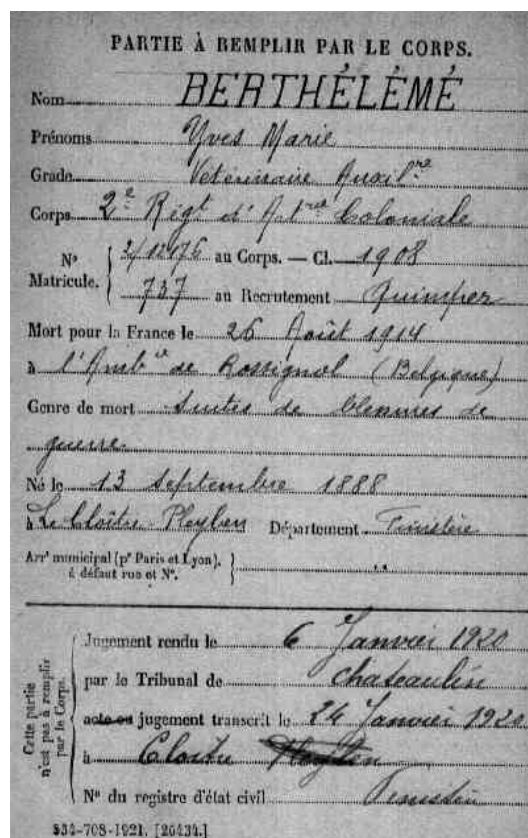 PARTIE À REMPLIR PAR LE CORPS.
Nom BERTHÉLÉMÉ
Prénoms Yves Marie
Grade Vétérinaire Auxil.re
Corps 2e Rigt d'Art.rie Coloniale
N° Matricule. 2/12176 au Corps. — Cl. 1908
737 au Recrutement Quimper
Mort pour la France le 26 Août 1914
à l'Amb.ce de Rossignol (Belgique)
Genre de mort Suites de blessures de
guerre
Né le 13 Septembre 1888
à Le Cloître-Pleyben Département Finistère
Arrt municipal (pr Paris et Lyon),
à défaut rue et N°. "
Cette partie n'est pas à remplir par le Corps.
Jugement rendu le 6 Janvier 1920
par le Tribunal de Chateaulin
acte ou jugement transcrit le 24 Janvier 1920
à Cloître Pleyben
N° du registre d'état civil Finistère
534-708-1921. [26434.]